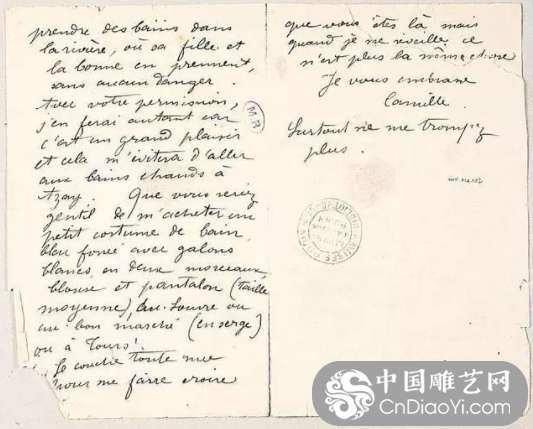 prendre des bains dans
la rivière, où sa fille et
la bonne en prennent,
sans aucun danger.
Avec votre permission,
j'en ferai autant car
c'est un grand plaisir
et cela m'évitera d'aller
aux bains chauds à
Azay. Que vous seriez
gentil de m'acheter un
petit costume de bain,
bleu foncé avec galons
blancs, en deux morceaux
blouse et pantalon (taille
moyenne), au Louvre ou
au bon marché (en serge)
ou à Tours!
Je couche toute nue
pour me faire croire
que vous êtes là mais
quand je me réveille ce
n'est plus la même chose
Je vous embrasse
Camille
Surtout ne me trompez
plus.
M.R
MUSÉE RODIN
中国雕艺网
CnDiaoYi.com